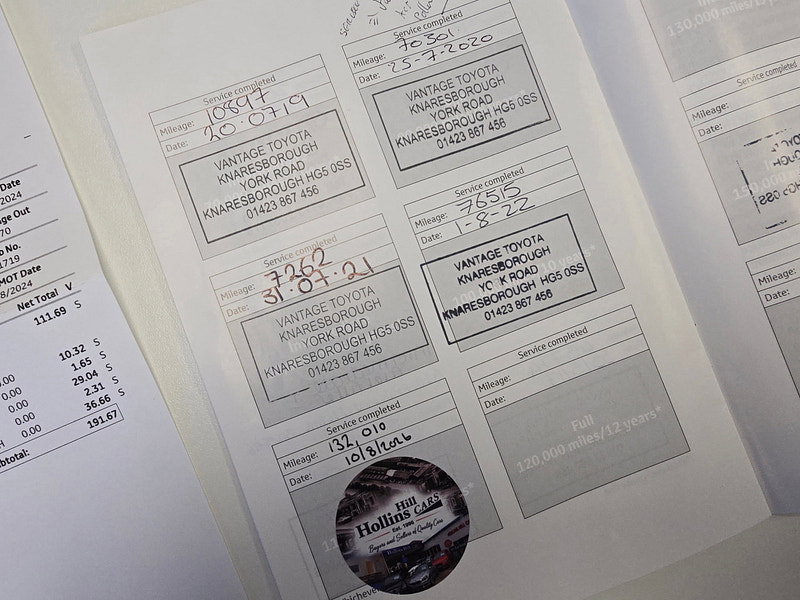 Date
2024
ge Out
70
o No.
1719
MOT Date
8/2024
Net Total V
111.69 S
.00 10.32 S
0.00 1.65 S
0.00 29.04 S
0.00 2.31 S
0.00 36.66 S
btotal: 191.67
Service completed
Mileage: 10897
Date: 20.07.19
VANTAGE TOYOTA
KNARESBOROUGH
YORK ROAD
KNARESBOROUGH HG5 0SS
01423 867 456
Service completed
Mileage: 70301
Date: 25-7-2020
VANTAGE TOYOTA
KNARESBOROUGH
YORK ROAD
KNARESBOROUGH HG5 0SS
01423 867 456
Service completed
Mileage: 7262
Date: 31.07.21
VANTAGE TOYOTA
KNARESBOROUGH
YORK ROAD
KNARESBOROUGH HG5 0SS
01423 867 456
Service completed
Mileage: 76515
Date: 1-8-22
VANTAGE TOYOTA
KNARESBOROUGH
YO K ROAD
KNARESBOROUGH HG5 0SS
01423 867 456
Service completed
Mileage: 132,010
Date: 10/8/2026
Hill
Hollins CARS
Est. 1996
Buyers and Sellers of Quality Cars
Service completed
Mileage:
Date:
Full
120,000 miles/12 years*
130,000 miles/13 years*
Service completed
Mileage:
Date:
Mileage:
Date: